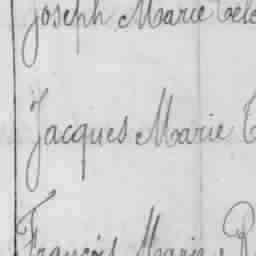 Joseph Marie
Jacques Marie
François Marie